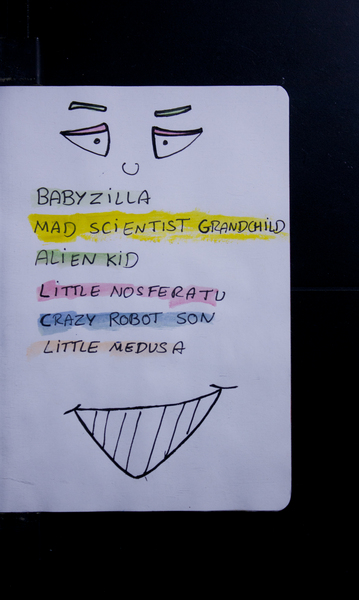 BABYZILLA
MAD SCIENTIST GRANDCHILD
ALIEN KID
LITTLE NOSFERATU
CRAZY ROBOT SON
LITTLE MEDUSA